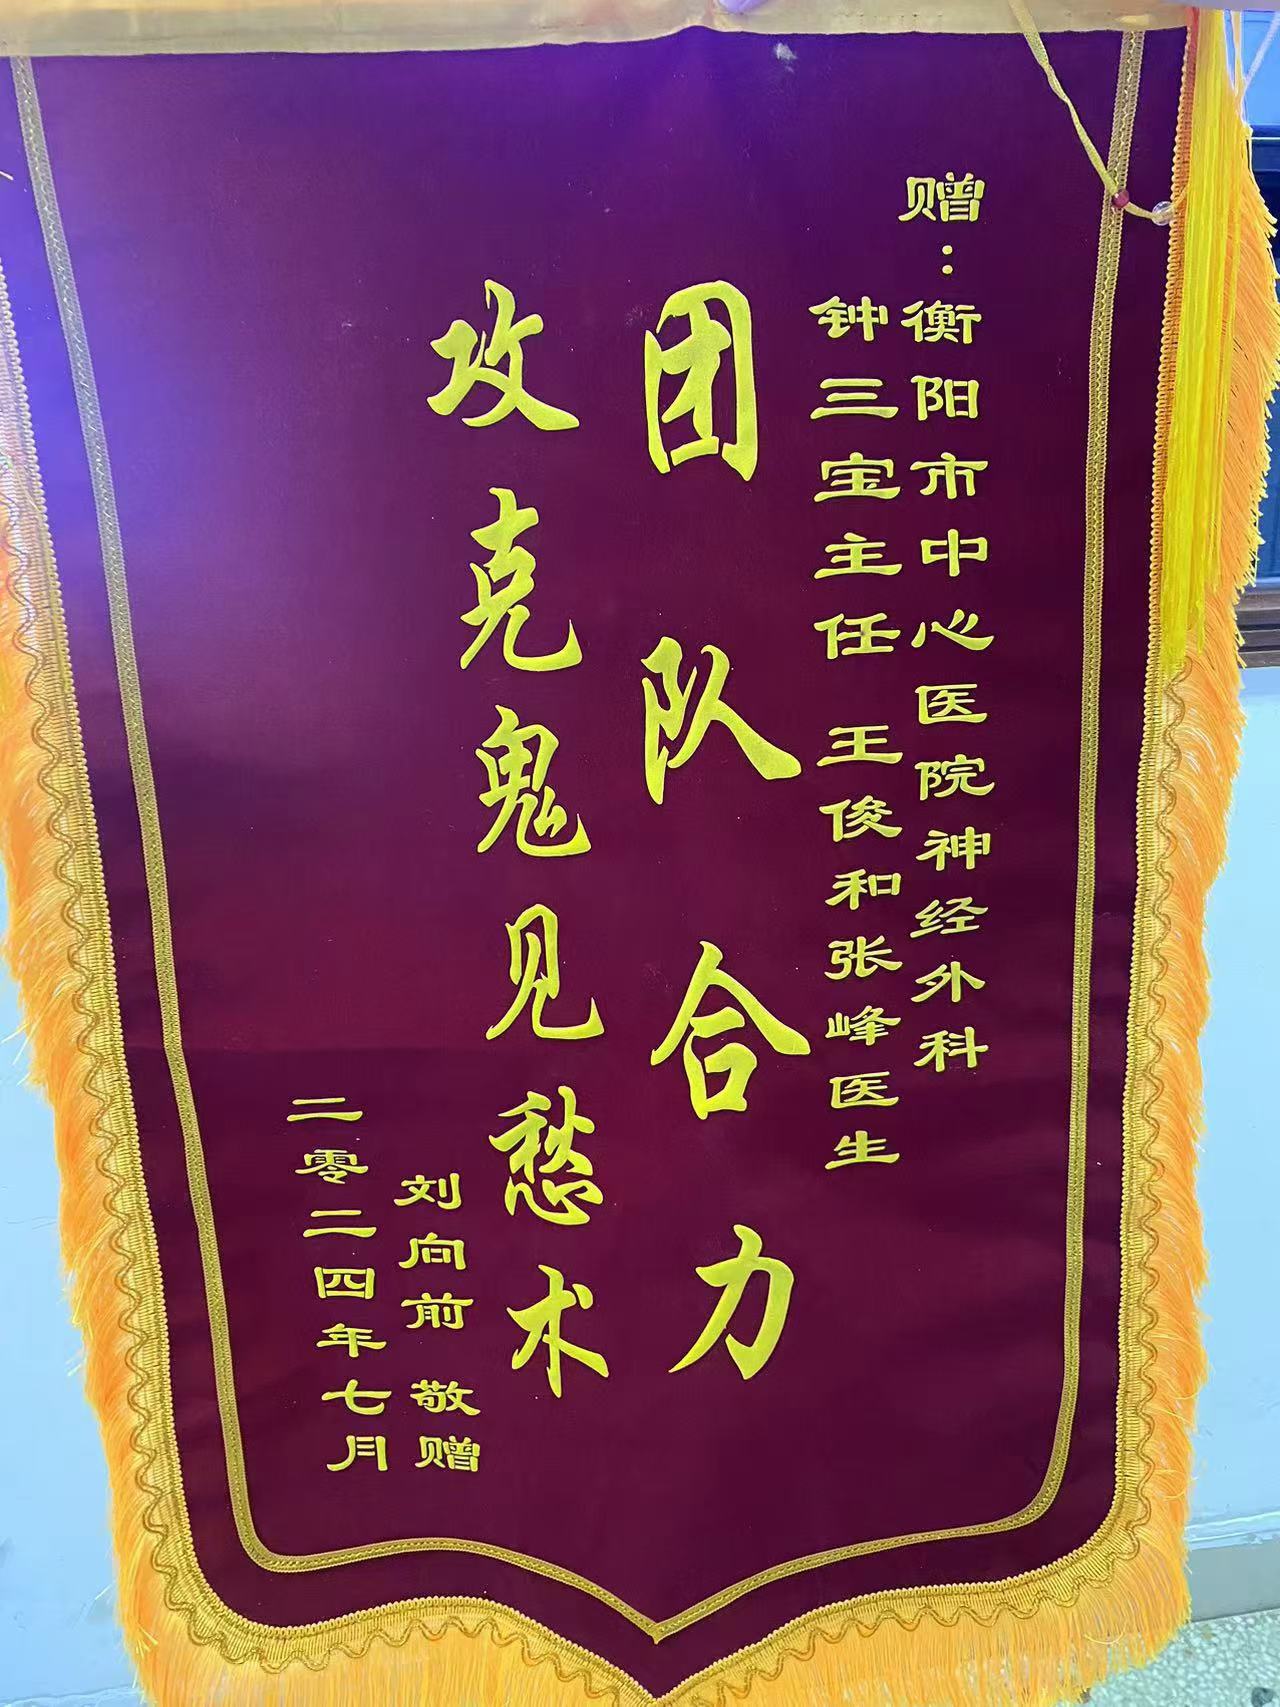 赠：衡阳市中心医院神经外科
钟三宝主任 王俊和张峰医生
团队合力
攻克鬼见愁术
刘向前 敬赠
二零二四年七月